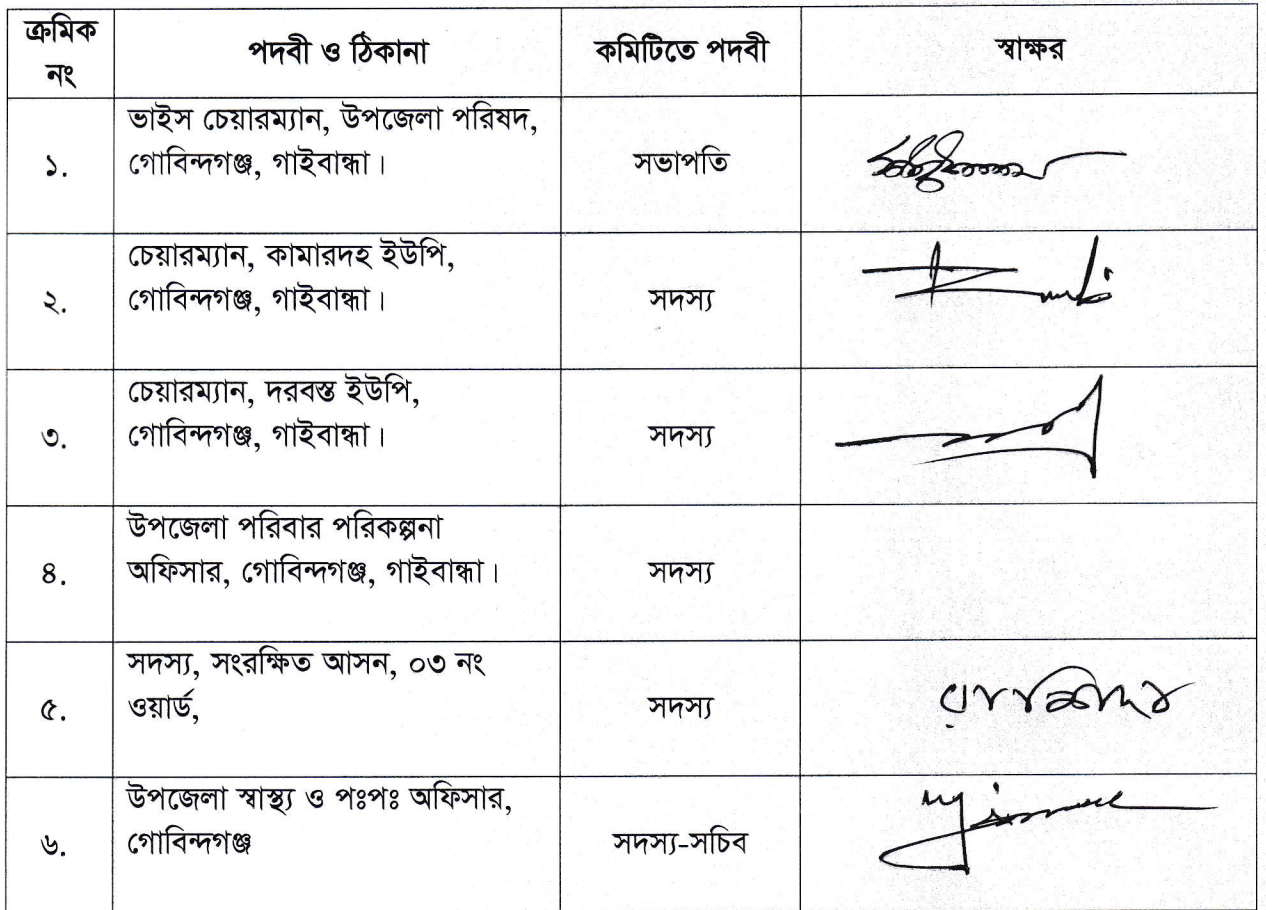 ক্রমিক নং পদবী ও ঠিকানা কমিটিতে পদবী স্বাক্ষর
ভাইস চেয়ারম্যান, উপজেলা পরিষদ,
১. গোবিন্দগঞ্জ, গাইবান্ধা। সভাপতি
চেয়ারম্যান, কামারদহ ইউপি,
২. গোবিন্দগঞ্জ, গাইবান্ধা। সদস্য
চেয়ারম্যান, দরবস্ত ইউপি,
৩. গোবিন্দগঞ্জ, গাইবান্ধা। সদস্য
উপজেলা পরিবার পরিকল্পনা
৪. অফিসার, গোবিন্দগঞ্জ, গাইবান্ধা। সদস্য
সদস্য, সংরক্ষিত আসন, ০৩ নং
৫. ওয়ার্ড, সদস্য
উপজেলা স্বাস্থ্য ও পঃপঃ অফিসার,
৬. গোবিন্দগঞ্জ সদস্য-সচিব